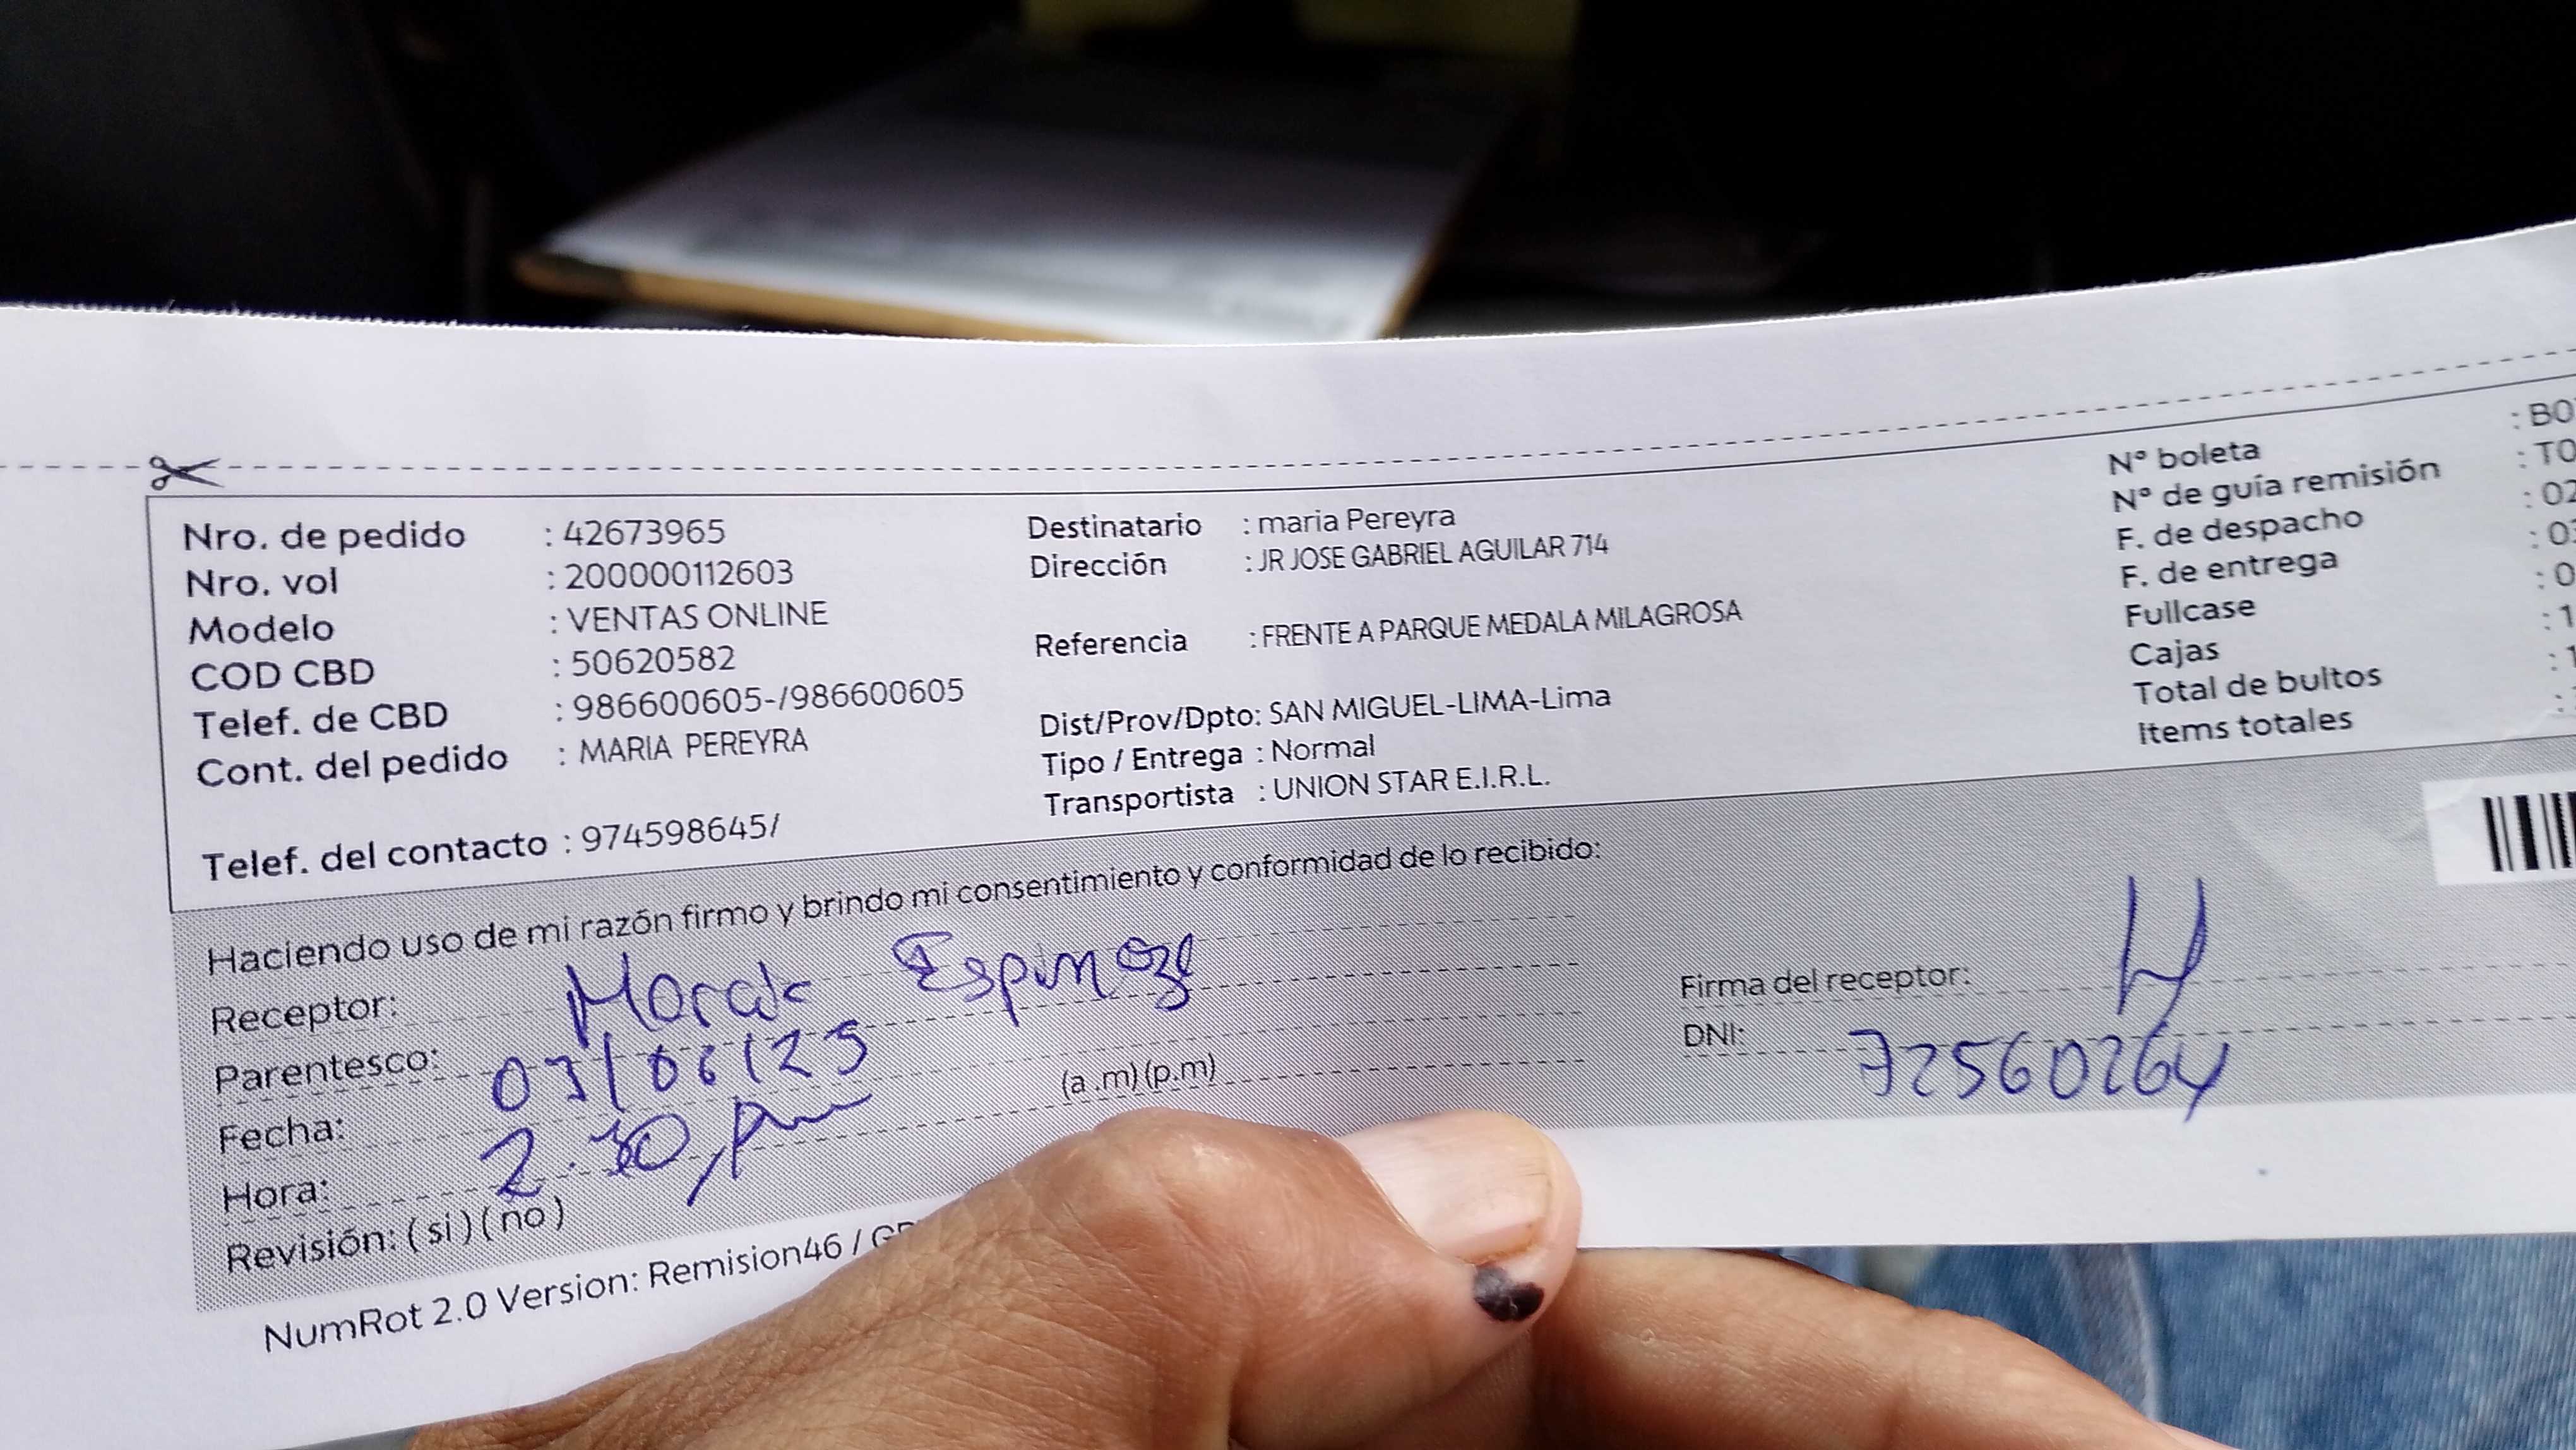 Nro. de pedido : 42673965
Nro. vol : 200000112603
Modelo : VENTAS ONLINE
COD CBD : 50620582
Telef. de CBD : 986600605-/986600605
Cont. del pedido : MARIA PEREYRA
Telef. del contacto : 974598645/
Destinatario : maria Pereyra
Dirección : JR JOSE GABRIEL AGUILAR 714
Referencia : FRENTE A PARQUE MEDALA MILAGROSA
Dist/Prov/Dpto: SAN MIGUEL-LIMA-Lima
Tipo / Entrega : Normal
Transportista : UNION STAR E.I.R.L.
N° boleta : B0
N° de guía remisión : T0
F. de despacho : 02
F. de entrega : 03
Fullcase : 0
Cajas : 1
Total de bultos : 1
Items totales :
Haciendo uso de mi razón firmo y brindo mi consentimiento y conformidad de lo recibido:
Receptor: Espinoza
Parentesco:
Fecha: 03/06/23
Hora: 2:30 pm (a.m)(p.m)
Revisión: (si)(no)
Firma del receptor:
DNI: 72560264
NumRot 2.0 Version: Remision46 /